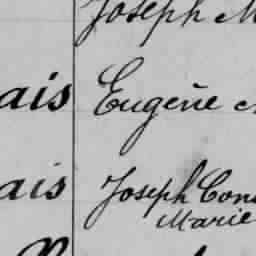 Joseph M
ais Eugène
ais Joseph
Marie